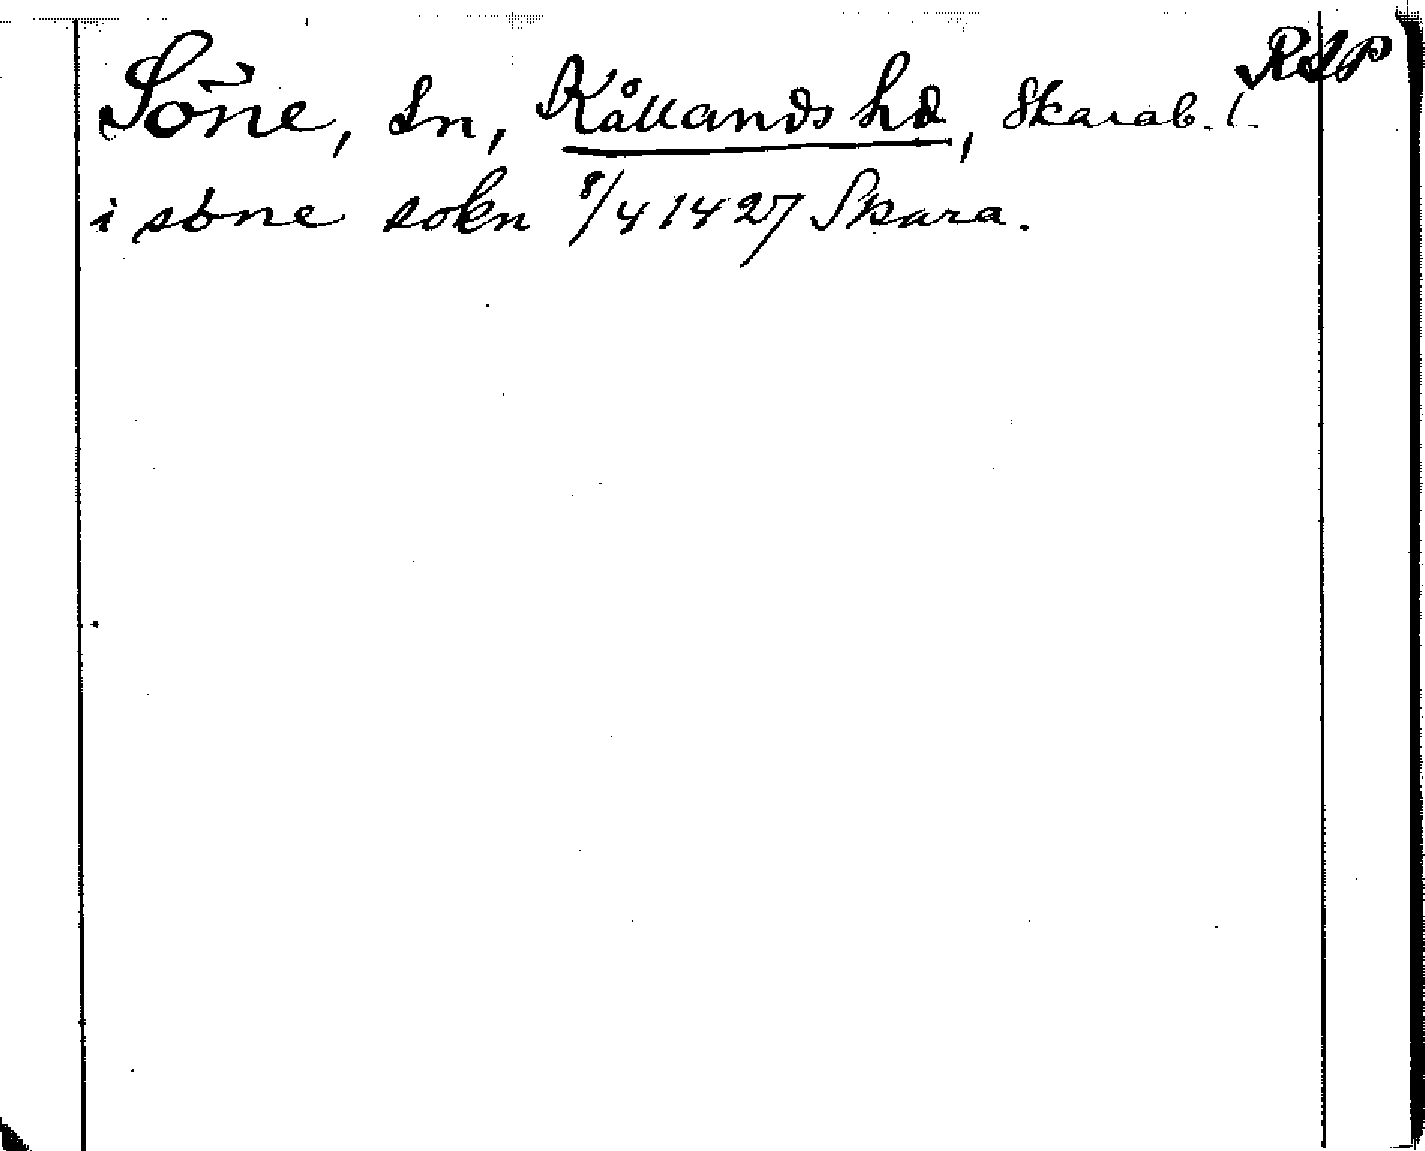 Söne, sn, Kållands hd, Skarab. l. RAP
i søne sokn 8/4 1427 Skara.